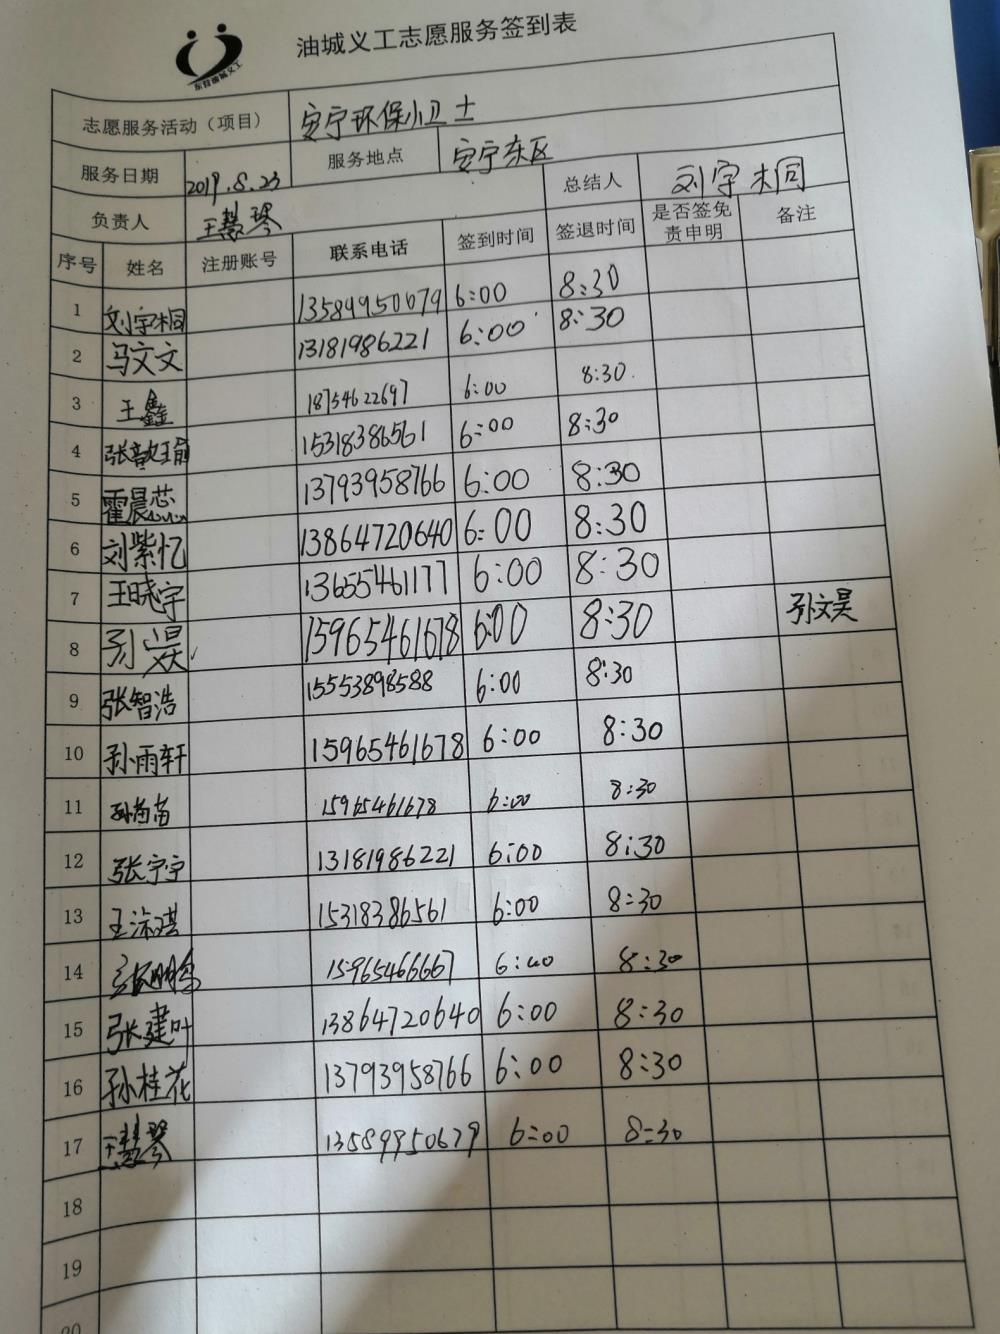 东营油城义工
油城义工志愿服务签到表
志愿服务活动（项目） 安宁环保小卫士
服务日期 2019.8.23 服务地点 安宁东区
负责人 王慧琴 总结人 刘宇桐
序号 姓名 注册账号 联系电话 签到时间 签退时间 是否签免责申明 备注
1 刘宇桐 13589950679 6:00 8:30
2 马文文 13181986221 6:00 8:30
3 王鑫 18754622697 6:00 8:30
4 张歆玥 15318386561 6:00 8:30
5 霍晨芯 13793958766 6:00 8:30
6 刘紫忆 13864720640 6:00 8:30
7 王晓宇 13655461177 6:00 8:30
8 15965461678 6:00 8:30 孙文昊
9 张智浩 15553898588 6:00 8:30
10 孙雨轩 15965461678 6:00 8:30
11 孙苗苗 15965461678 6:00 8:30
12 张宁宁 13181986221 6:00 8:30
13 王淙琪 15318386561 6:00 8:30
14 15965466667 6:00 8:30
15 张建叶 13864720640 6:00 8:30
16 孙桂花 13793958766 6:00 8:30
17 王慧琴 13589950679 6:00 8:30
18
19
20